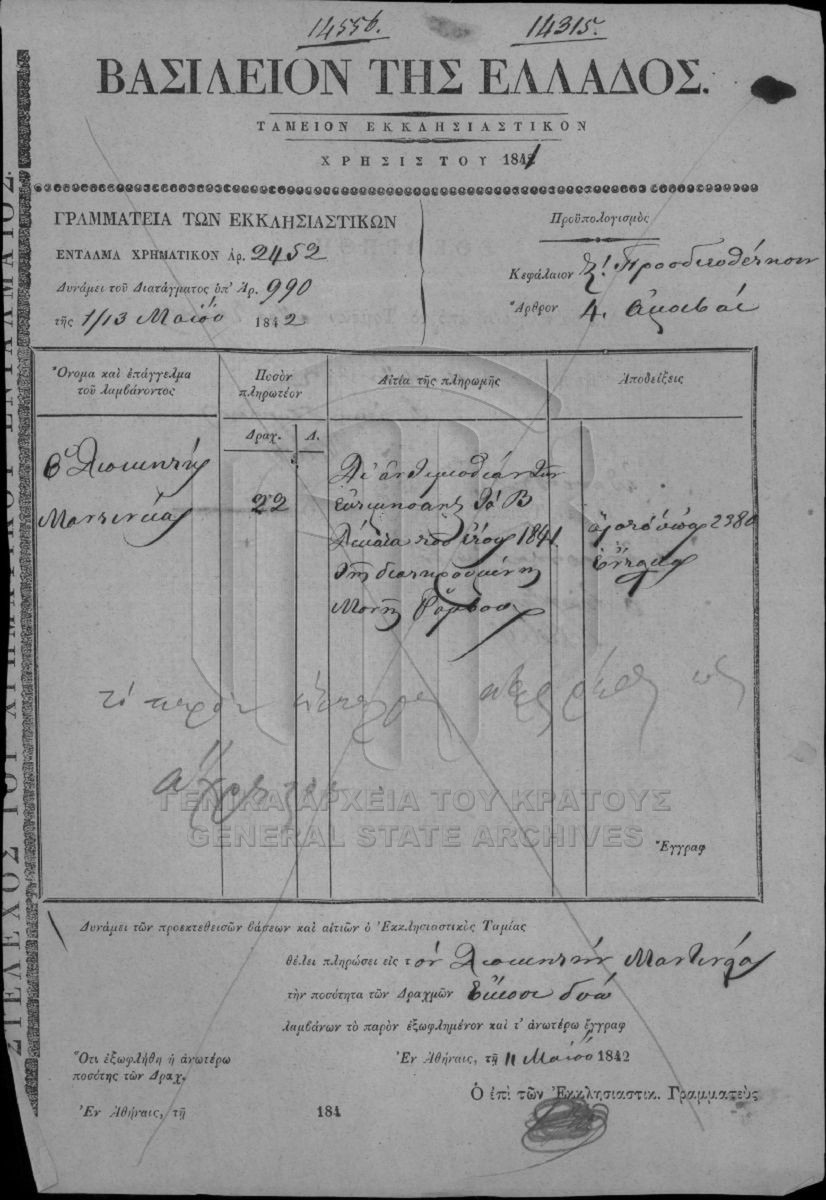 14556. 14315.
ΒΑΣΙΛΕΙΟΝ ΤΗΣ ΕΛΛΑΔΟΣ.
ΤΑΜΕΙΟΝ ΕΚΚΛΗΣΙΑΣΤΙΚΟΝ
ΧΡΗΣΙΣ ΤΟΥ 1841
ΓΡΑΜΜΑΤΕΙΑ ΤΩΝ ΕΚΚΛΗΣΙΑΣΤΙΚΩΝ
ΕΝΤΑΛΜΑ ΧΡΗΜΑΤΙΚΟΝ Ἀρ. 2452
Δυνάμει τοῦ Διατάγματος ὑπ' Ἀρ. 990
τῆς 1/13 Μαΐου 1842
Προϋπολογισμὸς
Κεφάλαιον
Ἄρθρον 4. ἀμοιβαὶ
Ὄνομα καὶ ἐπάγγελμα
τοῦ λαμβάνοντος
Ποσὸν
πληρωτέον
Αἰτία τῆς πληρωμῆς
Ἀποδείξεις
Δραχ. Λ.
ὁ Διοικητὴς
Μαντινείας
22
τὰ Β
Δίκαια τοῦ ἔτους 1841
τῆς διατηρουμένης
Μονῆς
2380
τὸ παρὸν ὡς
ἄχρηστον
ΓΕΝΙΚΑ ΑΡΧΕΙΑ ΤΟΥ ΚΡΑΤΟΥΣ
GENERAL STATE ARCHIVES
Ἔγγραφ
Δυνάμει τῶν προεκτεθεισῶν βάσεων καὶ αἰτιῶν ὁ Ἐκκλησιαστικὸς Ταμίας
θέλει πληρώσει εἰς τὸν Διοικητὴν Μαντινείας
τὴν ποσότητα τῶν Δραχμῶν Εἴκοσι δύο
λαμβάνων τὸ παρὸν ἐξωφλημένον καὶ τ' ἀνωτέρω ἔγγραφ
Ὅτι ἐξωφλήθη ἡ ἀνωτέρω
ποσότης τῶν Δραχ.
Ἐν Ἀθήναις, τῇ 11 Μαΐου 1842
Ὁ ἐπὶ τῶν Ἐκκλησιαστικ. Γραμματεὺς
Ἐν Ἀθήναις, τῇ 184
ΣΤΕΛΕΧΟΣ ΤΟΥ ΧΡΗΜΑΤΙΚΟΥ ΕΝΤΑΛΜΑΤΟΣ.